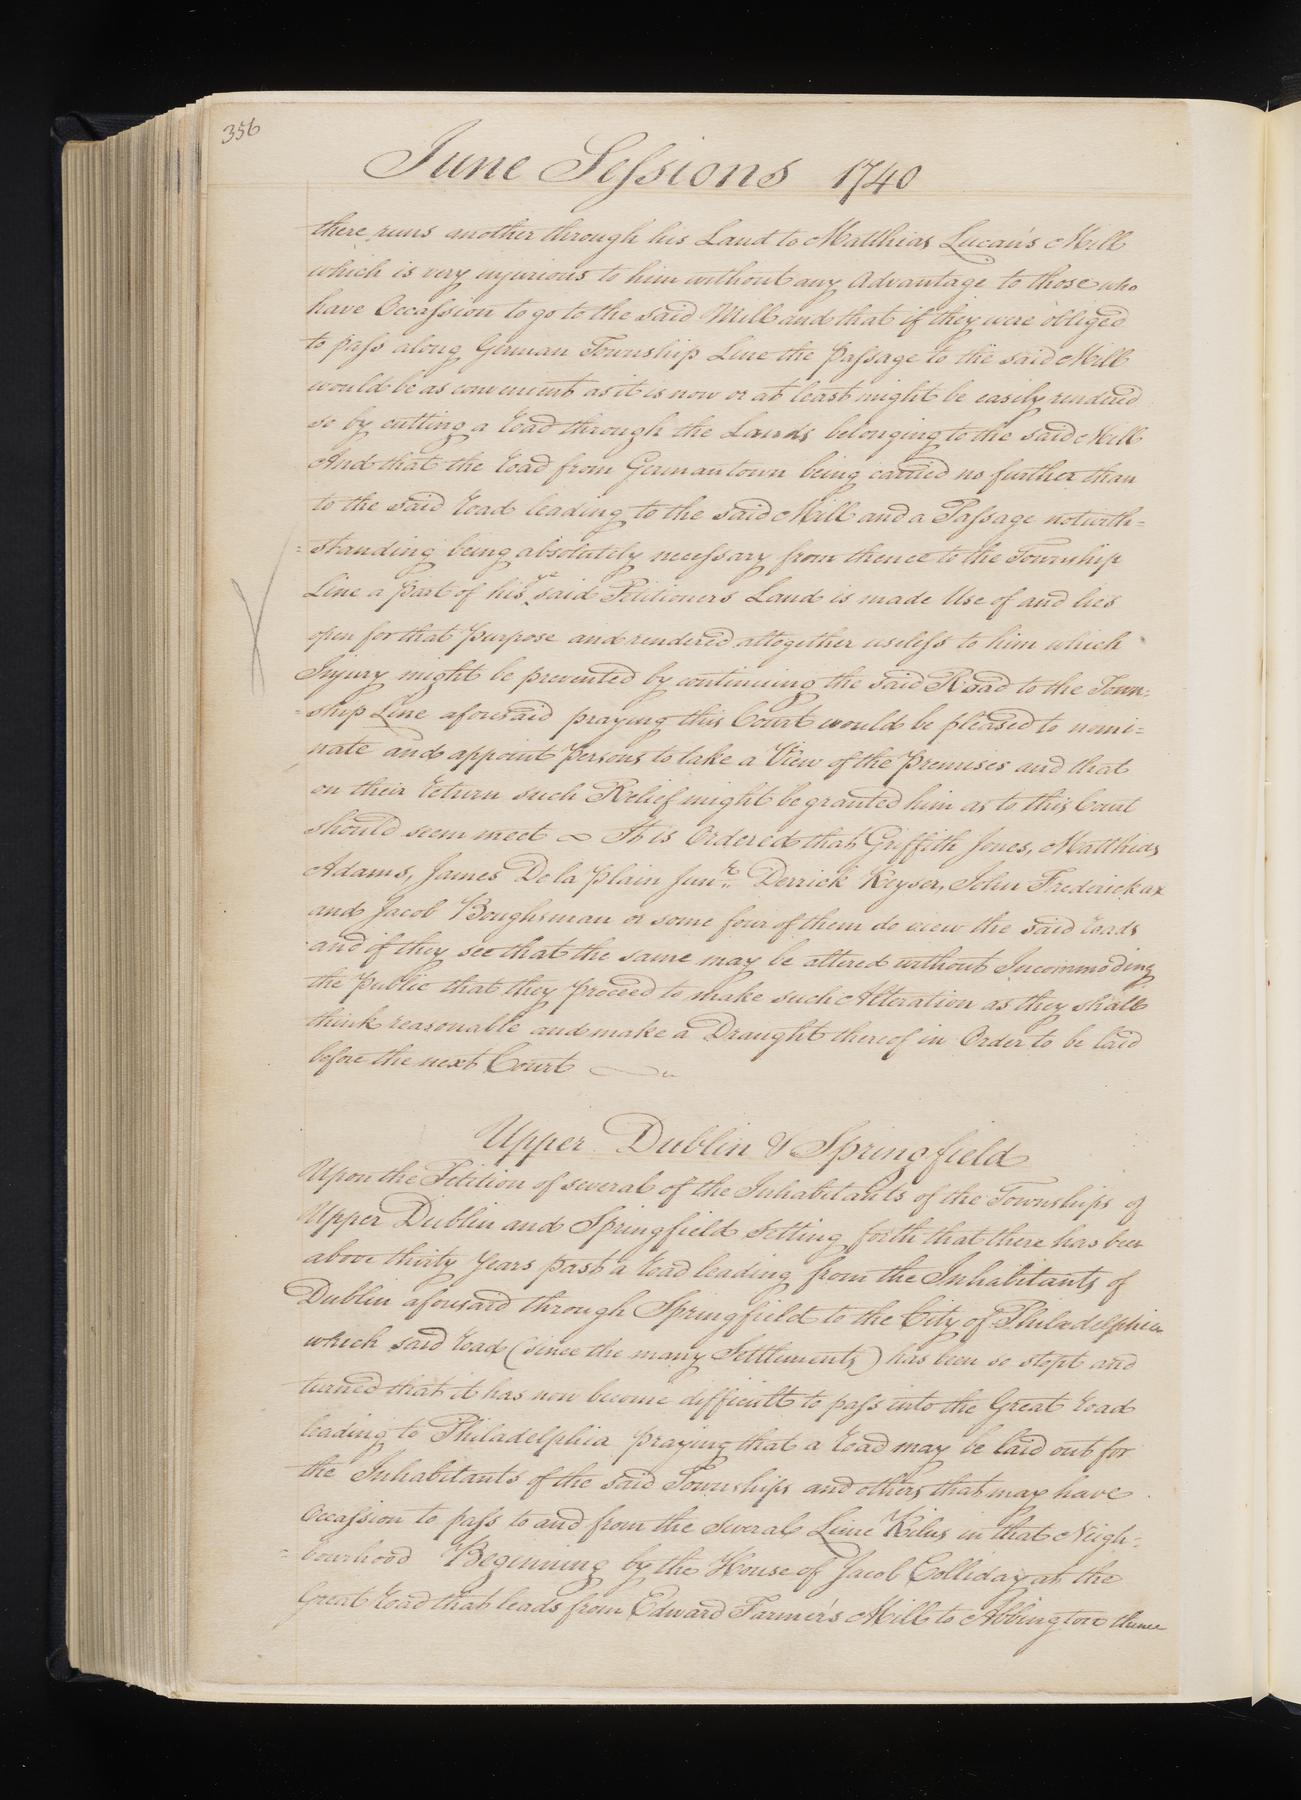 356
June Sessions 1740
there runs another through his Land to Matthias Lucan's Mill
which is very injurious to him without any Advantage to those who
have Occassion to go to the said Mill and that if they were obliged
to pass along German Township Line the Passage to the said Mill
would be as convenient as it is now or at least might be easily rendered
so by cutting a Road through the Lands belonging to the said Mill
And that the Road from Germantown being carried no further than
to the said Road leading to the said Mill and a Passage notwith=
=standing being absolutely necessary from thence to the Township
Line a Part of his ye said Petitioners Land is made Use of and lies
open for that Purpose and rendered altogether useless to him which
Injury might be prevented by continuing the said Road to the Town=
=ship Line aforesaid praying this Court would be pleased to nomi=
nate and appoint Persons to take a View of the Premises and that
on their Return such Relief might be granted him as to this Court
should seem meet ~ It is Ordered that Griffith Jones, Matthias
Adams, James De la Plain Junr. Derrick Keyser, John Frederick ax
and Jacob Boughman or some four of them do view the said Roads
and if they see that the same may be altered without Incommoding
the Public that they Proceed to make such Alteration as they shall
think reasonable and make a Draught thereof in Order to be laid
before the next Court
Upper Dublin & Springfield
Upon the Petition of several of the Inhabitants of the Townships of
Upper Dublin and Springfield Setting forth that there has been
above thirty Years past a Road leading from the Inhabitants of
Dublin aforesaid through Springfield to the City of Philadelphia
which said Road (since the many Settlements) has been so stopt and
turned that it has now become difficult to pass into the Great Road
leading to Philadelphia praying that a Road may be laid out for
the Inhabitants of the said Townships and others that may have
Occassion to pass to and from the several Lime Kilns in that Neigh=
=bourhood Beginning by the House of Jacob Colliday at the
Great Road that leads from Edward Farmer's Mill to Abbington thence